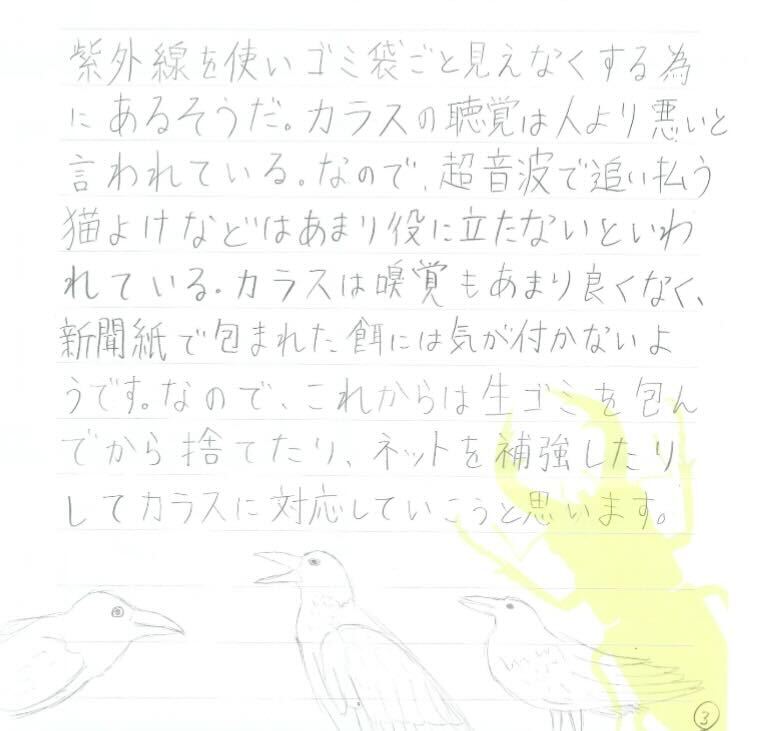 紫外線を使いゴミ袋ごと見えなくする為
にあるそうだ。カラスの聴覚は人より悪いと
言われている。なので、超音波で追い払う
猫よけなどはあまり役に立たないといわ
れている。カラスは嗅覚もあまり良くなく、
新聞紙で包まれた餌には気が付かないよ
うです。なので、これからは生ゴミを包ん
でから捨てたり、ネットを補強したり
してカラスに対応していこうと思います。
③